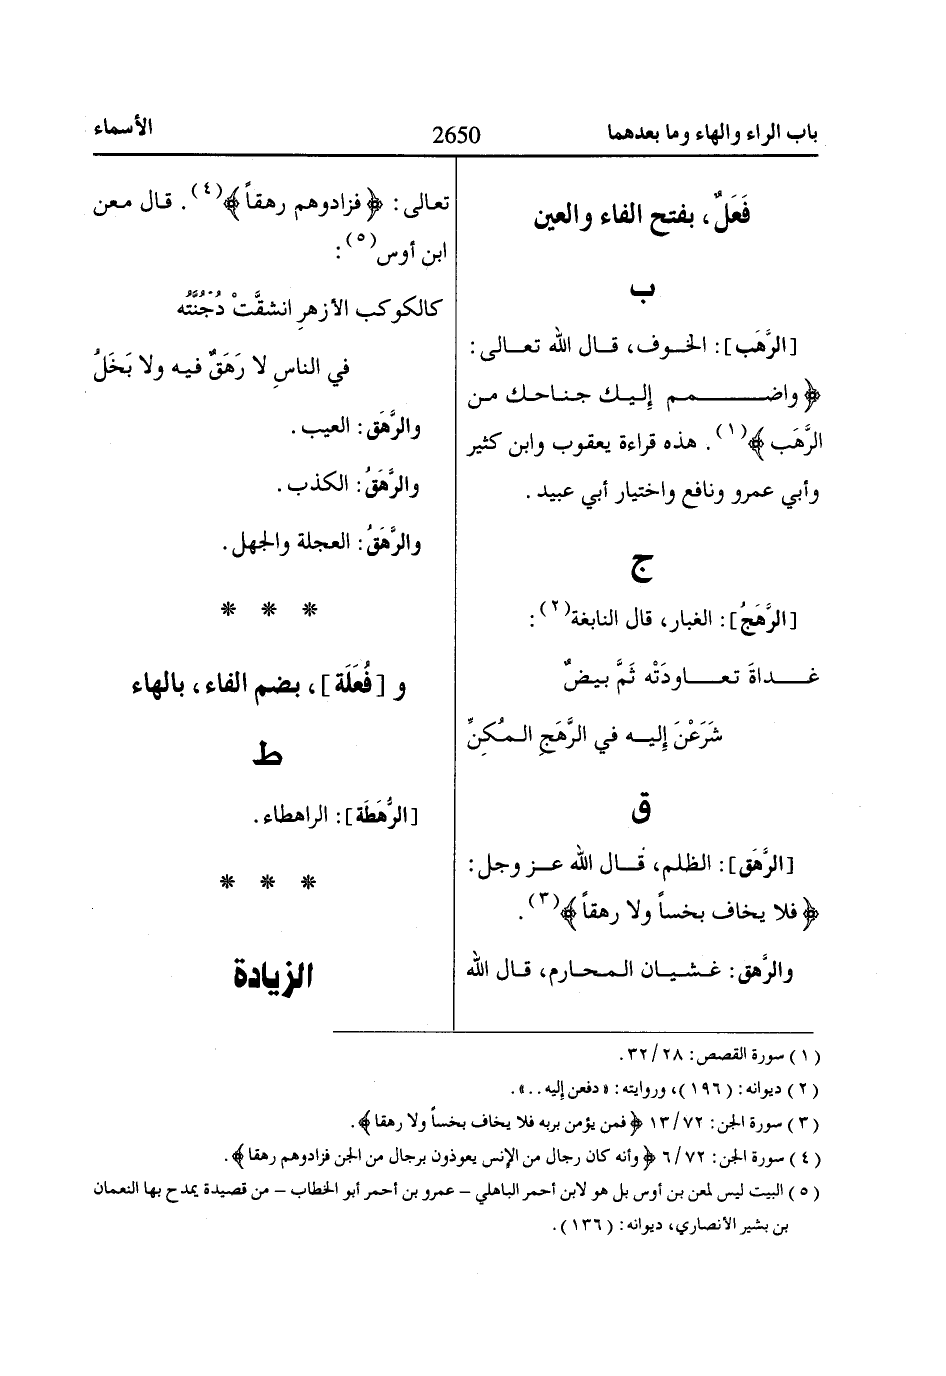 باب الراء والهاء وما بعدهما
2650
الأسماء
فَعَلٌ، بفتح الفاء والعين
ب
[الرَّهَب]: الخوف، قال الله تعالى:
﴿واضمم إليك جناحك من
الرَّهَب﴾(١). هذه قراءة يعقوب وابن كثير
وأبي عمرو ونافع واختيار أبي عبيد.
ج
[الرَّهَجُ]: الغبار، قال النابغة(٢):
غداةَ تعاودَتْه ثَمَّ بيضٌ
شَرَعْنَ إليه في الرَّهَجِ المُكِنِّ
ق
[الرَّهَق]: الظلم، قال الله عز وجل:
﴿فلا يخاف بخساً ولا رهقاً﴾(٣).
والرَّهق: غشيان المحارم، قال الله
تعالى: ﴿فزادوهم رهقاً﴾(٤). قال معن
ابن أوس(٥):
كالكوكب الأزهرِ انشقَّتْ دُجُنَّتُه
في الناسِ لا رَهَقٌ فيه ولا بَخَلُ
والرَّهَق: العيب.
والرَّهَقُ: الكذب.
والرَّهَقُ: العجلة والجهل.
* * *
و [فُعَلَة]، بضم الفاء، بالهاء
ط
[الرُّهَطَة]: الراهطاء.
* * *
الزيادة
(١) سورة القصص: ٢٨/ ٣٢.
(٢) ديوانه: (١٩٦)، وروايته: «دفعن إليه..».
(٣) سورة الجن: ٧٢/ ١٣ ﴿فمن يؤمن بربه فلا يخاف بخساً ولا رهقا﴾.
(٤) سورة الجن: ٧٢/ ٦ ﴿وأنه كان رجال من الإنس يعوذون برجال من الجن فزادوهم رهقا﴾.
(٥) البيت ليس لمعن بن أوس بل هو لابن أحمر الباهلي – عمرو بن أحمر أبو الخطاب – من قصيدة يمدح بها النعمان
بن بشير الأنصاري، ديوانه: (١٣٦).